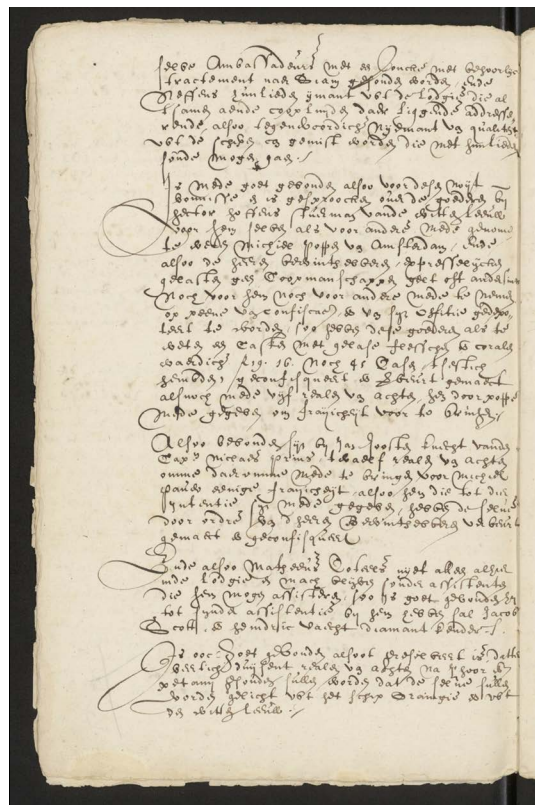 selve Ambassadeurs met een Joncke met behoorlijc
tractement naer Siam gesonden worden, Ende
Neffens hunlieden ymant uut de Lodgie die al
tsamen aende cooplieden daer liggende addresse
rende, alsoo tegenwoordich nyemant van qualiteyt
uut de schepen en gemist worden die met hunlieden
soude mogen gaen.
Is mede goet gevonden alsoo voor desen noyt
vonnisse en is gesproocken over de goederen by
hector Roffens stuerman vande witten Leeuw
voor hem selven als voor andere mede genomen
te weten Michiel poppen van Amsterdam, Ende
alsoo de heeren bewinthebberen, expresselycken
gelasten geen Coopmanschappen gelt oft anders
Noch voor hem noch voor andere mede te nemen
op peene van confiscatie en van sijn officie gedepor
teert te worden, soo hebben dese goederen als te
weten een Casken met gelase flesschen en corale
waerdich 19. 16. Noch 41 Casse
hembden geconfisqueert en verbeurt gemaect
alsnoch mede vijf realen van achten, hem door poppen
mede gegeven om frayicheyt voor te bringen.
Alsoo bevonden sijn by Jan Joosten knecht vanden
Capn niclaes prins, twaelf realen van achten
omme daervoor mede te bringen voor Michiel
pauw eenige frayicheyt, alsoo hem die tot dier
Intentie sijn mede gegeven, hebben de selve
door ordre van dheeren Bewinthebberen verbeurt
gemaect en geconfisqueert
Ende alsoo Matheeus Coteels nyet alleen alhier
inde Lodgie en mach blyven sonder assistenten
die hem mogen assisteren, soo is goet gevonden
tot zijnder assistentie by hem hebben sal Jacob
Scott, en heindric diamant kender.
Is ooc goet gevonden alsoot geresolveert is, datter
veertich duysent realen van achten na Jhoor en
patany gesonden sullen worden dat de selve sullen
worden gelicht uut het schip Oraingie en uut
den witten Leeuw.